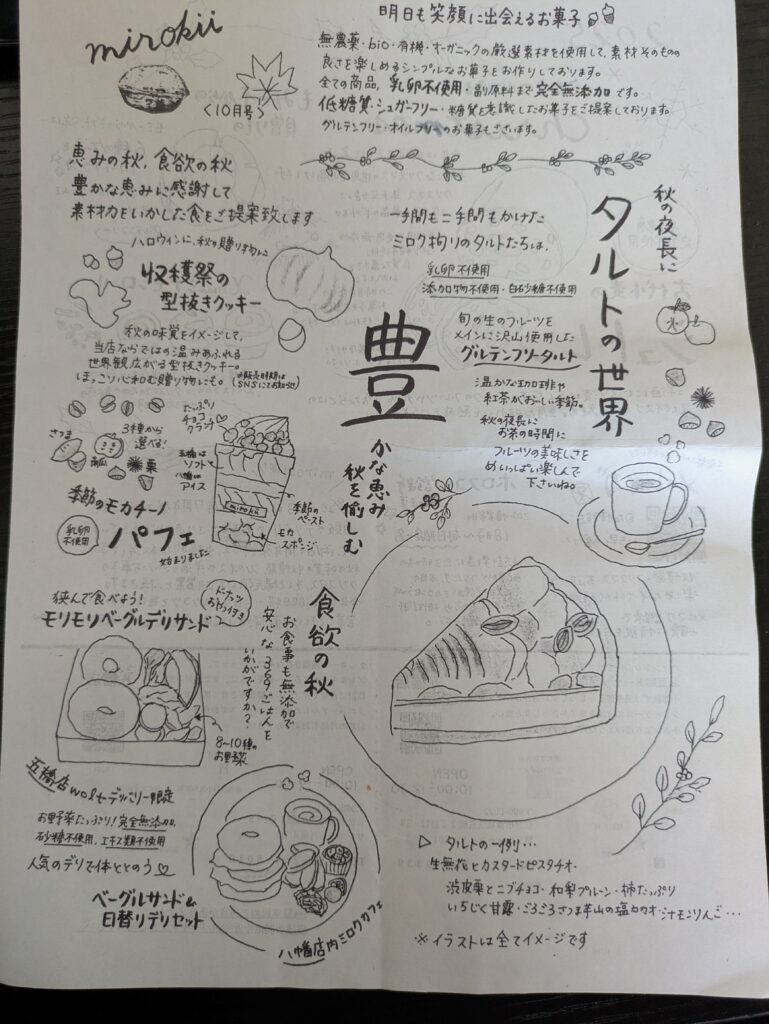 mirokii
〈10月号〉
明日も笑顔に出会えるお菓子
無農薬・bio・有機・オーガニックの厳選素材を使用して、素材そのものの
良さを楽しめるシンプルなお菓子をお作りしております。
全ての商品、乳卵不使用・副原料まで完全無添加です。
低糖質・シュガーフリー・糖質を意識したお菓子をご提案しております。
グルテンフリー・オイルフリーのお菓子もございます。
恵みの秋、食欲の秋
豊かな恵みに感謝して
素材力をいかした食をご提案致します
ハロウィンに、秋の贈り物に
収穫祭の
型抜きクッキー
秋の味覚をイメージして、
当店ならではの温みあふれる
世界観広がる型抜きクッキー。
ほっこり心和む贈り物にも。
※販売時期は
(SNSにてお知らせ)
秋の夜長に
タルトの世界
一手間も二手間もかけた
ミロク拘りのタルトたちは、
乳卵不使用
添加物不使用・白砂糖不使用
旬の生のフルーツを
メインに沢山使用した
グルテンフリータルト
温かな珈琲や
紅茶がおいしい季節。
秋の夜長に
お茶の時間に
フルーツの美味しさを
めいっぱい楽しんで
下さいね。
豊
かな恵み
秋を愉しむ
3種から
選べる!
さつま
南瓜
栗
季節のモカチーノ
パフェ
乳卵
不使用
始まりました
たっぷり
チョコ
クランチ
五橋は
ソフト
八幡は
アイス
mirokii
季節の
ペースト
モカ
スポンジ
挟んで食べよう!
モリモリベーグルデリサンド
ドーナッツ
おやつ付き
8〜10種の
お野菜
食欲の秋
お食事も無添加で
安心な369ごはんを
いかがですか?
五橋店woltデリバリー限定
お野菜たっぷり!完全無添加、
砂糖不使用、エキス類不使用
人気のデリで体ととのう♡
ベーグルサンド&
日替りデリセット
八幡店内ミロクカフェ
▷ タルトの一例…
生無花とカスタードピスタチオ・
渋皮栗とニブチョコ・和梨プルーン・柿たっぷり
いちじく甘露・ごろごろさつま芋山の塩カカオ・シナモンりんご…
※イラストは全てイメージです